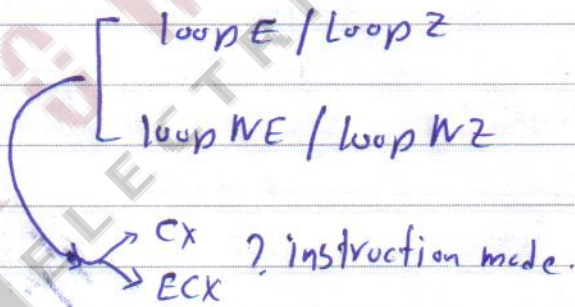 loopE / LoopZ
loopNE / loopNZ
CX
ECX
? instruction mode.
ELECTRI